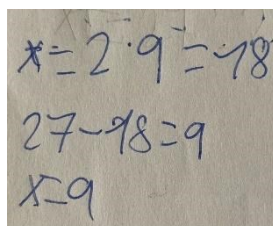 x=2·9=18
27-18=9
x=9